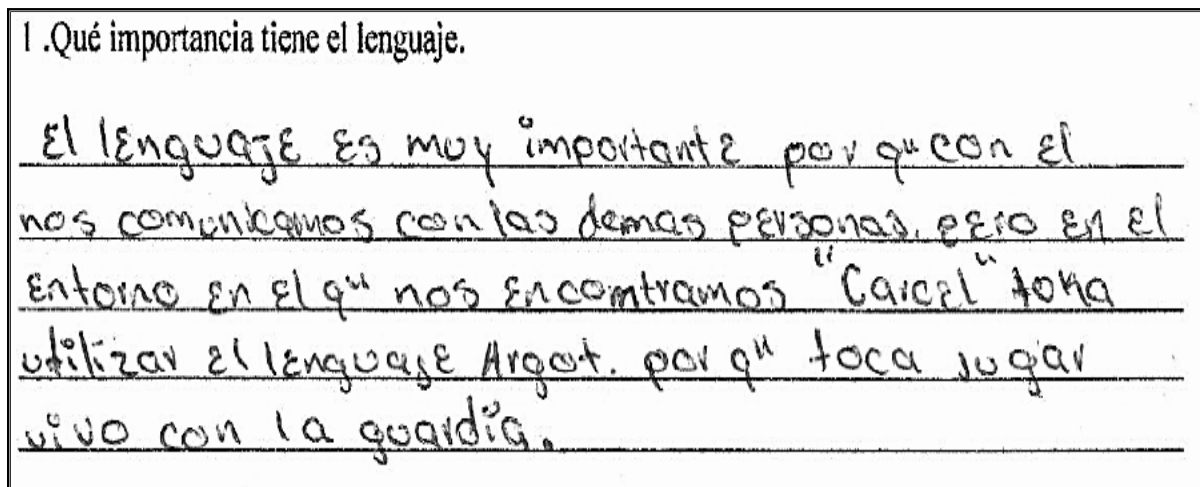 1 .Qué importancia tiene el lenguaje.
El lenguaje es muy importante por qu con el
nos comunicamos con las demas personas. pero en el
entorno en el qu nos encomtramos "Carcel" toka
utilizar el lenguaje Argot. por qu toca jugar
vivo con la guardia.